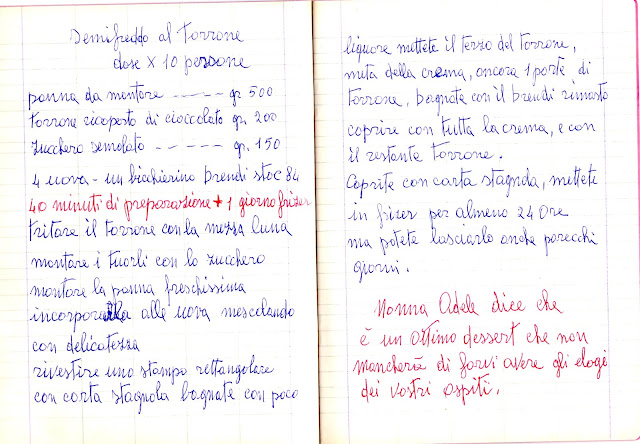 Semifreddo al Torrone
dose x 10 persone
panna da montare ----- gr 500
torrone ricoperto di cioccolato gr. 200
zucchero semolato ----- gr. 150
4 uova - un bicchierino brendi stoc 84
40 minuti di preparazione + 1 giorno frizer
tritare il torrone con la mezza luna
montare i tuorli con lo zucchero
montare la panna freschissima
incorporatela alle uova mescolando
con delicatezza
rivestire uno stampo rettangolare
con carta stagnola bagnate con poco
liquore mettete il terzo del torrone,
metà della crema, ancora 1 parte di
torrone, bagnate con il brendi rimasto
coprire con tutta la crema, e con
il restante torrone.
Coprite con carta stagnola, mettete
in frizer per almeno 24 ore
ma potete lasciarlo anche parecchi
giorni.
Nonna Adele dice che
è un ottimo dessert che non
mancherà di farvi avere gli elogi
dei vostri ospiti.